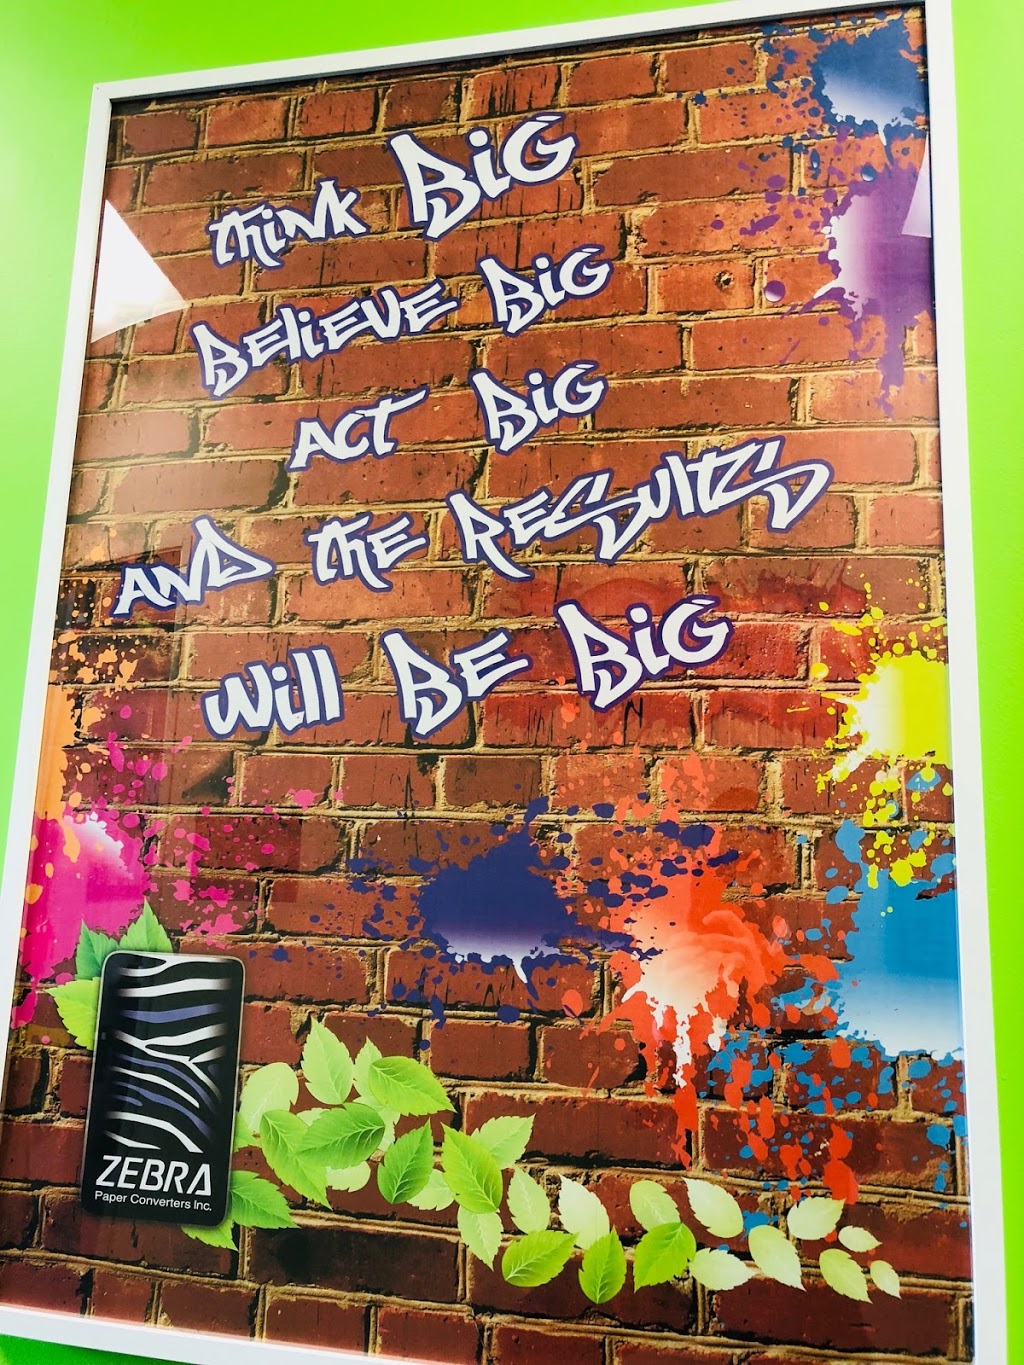 think Big
Believe Big
Act Big
And the Results
will Be Big
ZEBRA
Paper Converters Inc.